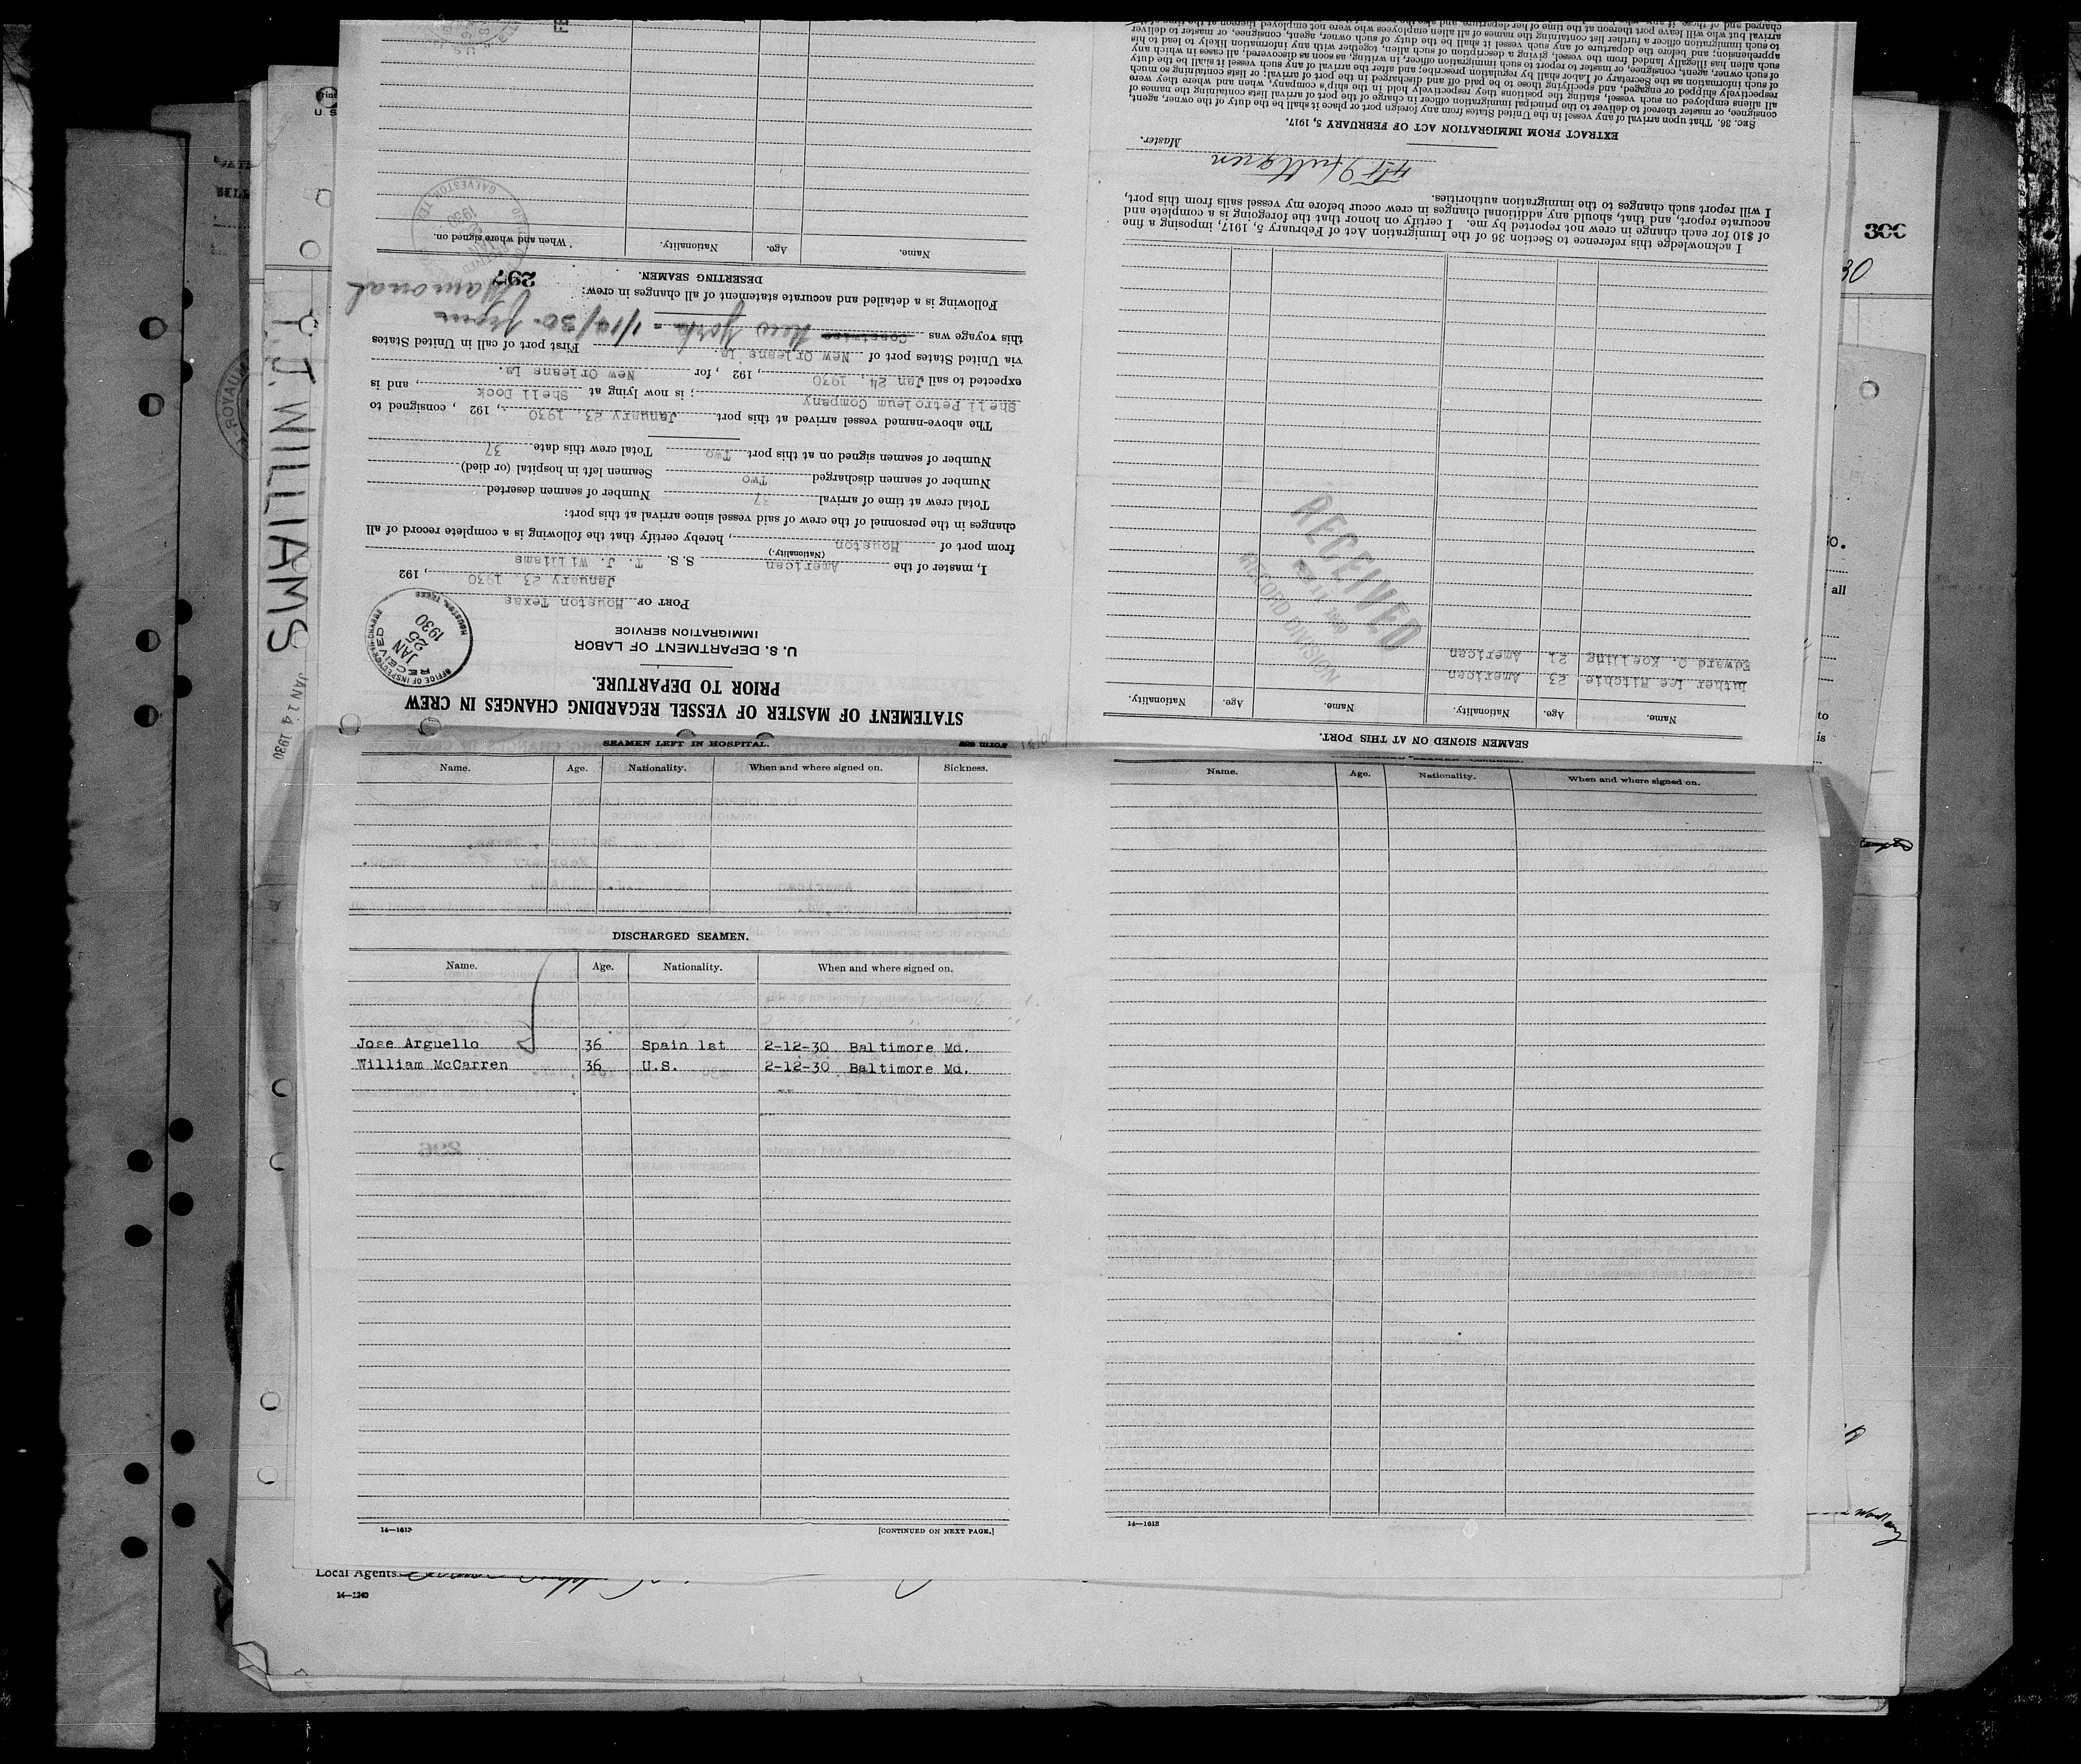 STATEMENT OF MASTER OF VESSEL REGARDING CHANGES IN CREW
PRIOR TO DEPARTURE.
U. S. DEPARTMENT OF LABOR
IMMIGRATION SERVICE
OFFICE OF INSPECTOR-IN-CHARGE
RECEIVED
JAN
25
1930
HOUSTON, TEXAS
PORT OF Houston Texas
January 23, 1930, 192
I, master of the American S.S. T. J. Williams
(Nationality.)
from port of Houston, hereby certify that the following is a complete record of all
changes in the personnel of the crew of said vessel since arrival at this port:
Total crew at time of arrival 37 Number of seamen deserted
Number of seamen discharged Two Seamen left in hospital (or died)
Number of seamen signed on at this port Two Total crew this date 37
The above-named vessel arrived at this port January 23 1930, 192 , consigned to
Shell Petroleum Company; is now lying at Shell Dock, and is
expected to sail Jan 24, 1930, 192 , for New Orleans La.
via United States port of New Orleans La. First port of call in United States
this voyage was Coastwise New York - 1/14/30 from
Mamonal
Following is a detailed and accurate statement of all changes in crew:
297
DESERTING SEAMEN.
Name. Age. Nationality. When and where signed on.
GALVESTON, TEX
1930
SEAMEN SIGNED ON AT THIS PORT.
Name. Age. Nationality. Name. Age. Nationality.
Luther Lee Ritchie 23 American
Edward O. Koelling 21 American
RECEIVED
RECORD DIVISION
I acknowledge this reference to Section 36 of the Immigration Act of February 5, 1917, imposing a fine
of $10 for each change in crew not reported by me. I certify on honor that the foregoing is a complete and
accurate report, and that, should any additional changes in crew occur before my vessel sails from this port,
I will report such changes to the immigration authorities.
Master.
EXTRACT FROM IMMIGRATION ACT OF FEBRUARY 5, 1917.
SEC. 36. That upon arrival of any vessel in the United States from any foreign port or place it shall be the duty of the owner, agent,
consignee, or master thereof to deliver to the principal immigration officer in charge of the port of arrival lists containing the names of
all aliens employed on such vessel, stating the positions they respectively hold in the ship's company, when and where they were
respectively shipped or engaged, and specifying those to be paid off and discharged in the port of arrival; or lists containing so much
of such information as the Secretary of Labor shall by regulation prescribe; and after the arrival of any such vessel it shall be the duty
of such owner, agent, consignee, or master to report to such immigration officer, in writing, as soon as discovered, all cases in which any
such alien has illegally landed from the vessel, giving a description of such alien, together with any information likely to lead to his
apprehension; and before the departure of any such vessel it shall be the duty of such owner, agent, consignee, or master to deliver
to such immigration officer a further list containing the names of all alien employees who were not employed thereon at the time of the
arrival but who will leave port thereon at the time of her departure, and also the
T. J. WILLIAMS
JAN 14 1930
SEAMEN LEFT IN HOSPITAL.
Name. Age. Nationality. When and where signed on. Sickness.
DISCHARGED SEAMEN.
Name. Age. Nationality. When and where signed on.
Jose Arguello 36 Spain 1st 2-12-30 Baltimore Md.
William McCarren 36 U.S. 2-12-30 Baltimore Md.
14—1613
[CONTINUED ON NEXT PAGE.]
Name. Age. Nationality. When and where signed on.
14—1613
Local Agents
14—1240
300
30
all
to
is